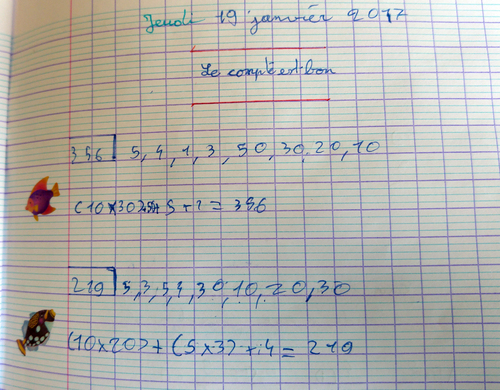 Jeudi 19 janvier 2017
Le compte est bon
356 5, 4, 1, 3, 50, 30, 20, 10
(10×30)+5+1 = 356
219 5, 3, 5, 4, 30, 10, 20, 30
(10×20)+(5×3)+4 = 219